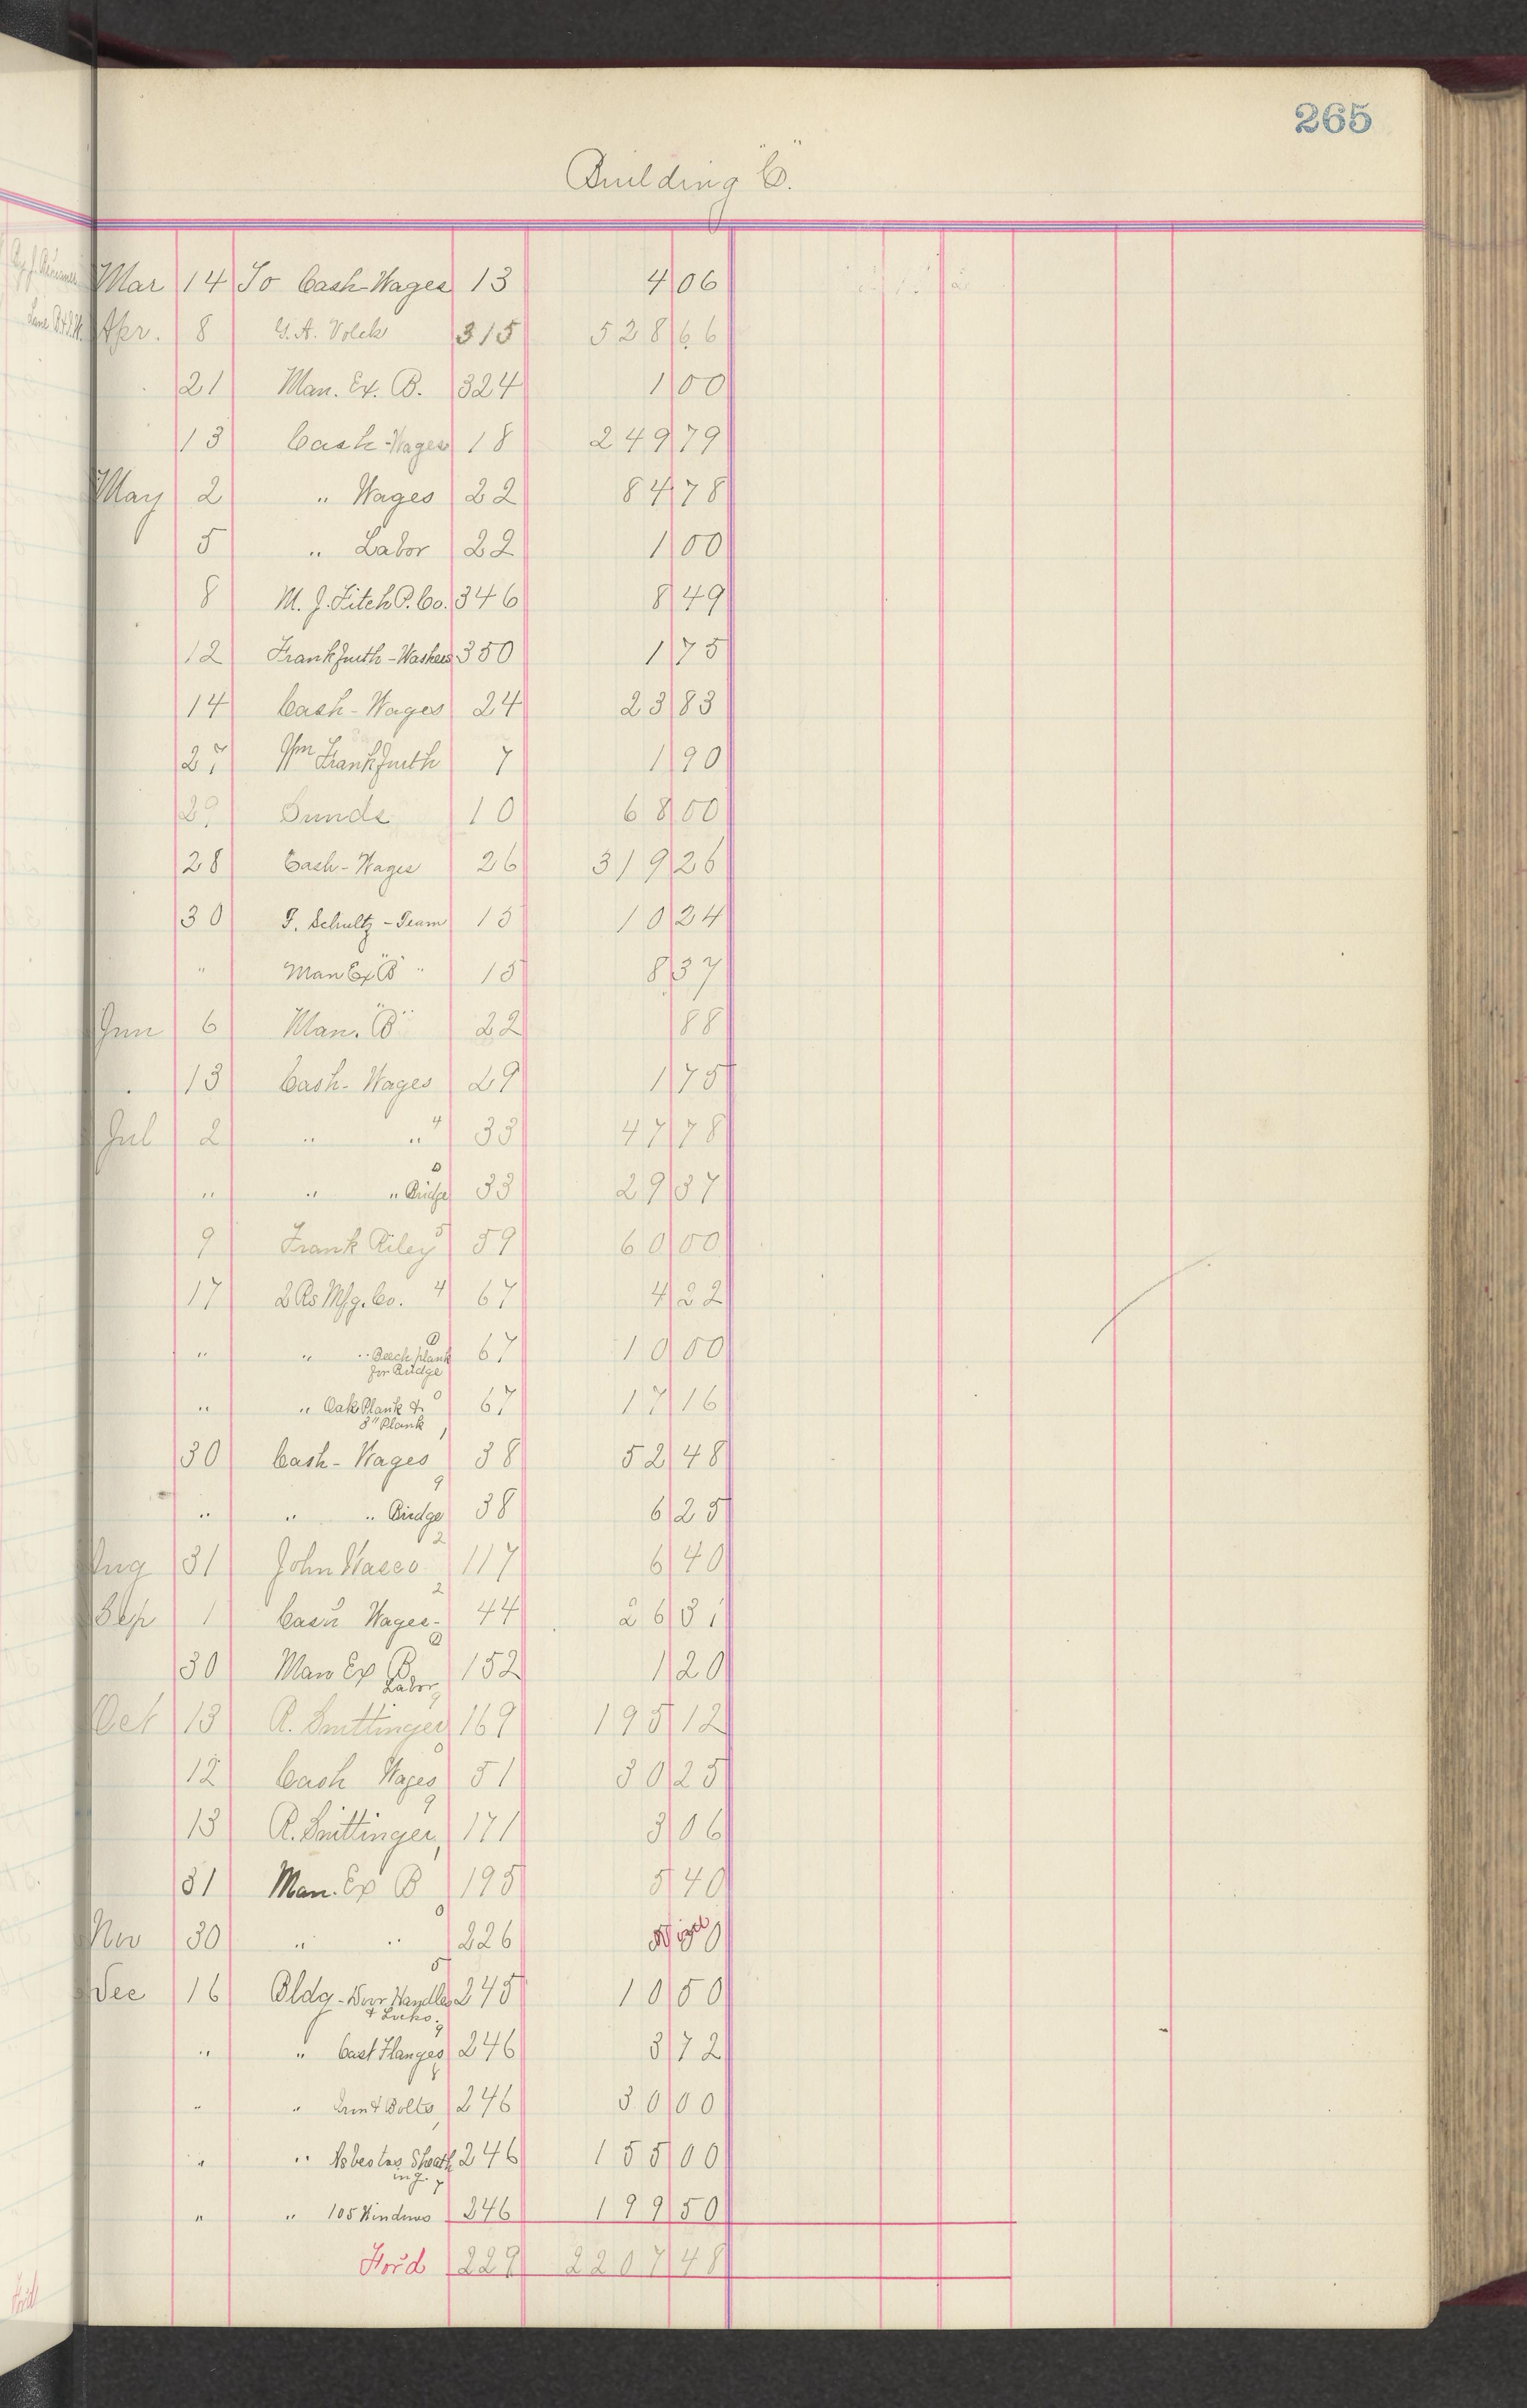 265
Building "C".
Mar 14 To Cash-Wages 13 4 06
Apr. 8 G. A. Volck 315 528 66
21 Man. Ex. B. 324 1 00
13 Cash-Wages 18 249 79
May 2 " Wages 22 84 78
5 " Labor 22 1 00
8 M. J. Fitch P. Co. 346 8 49
12 Frankfurth-Washers 350 1 75
14 Cash-Wages 24 23 83
27 Wm Frankfurth 7 1 90
29 Sunds 10 68 00
28 Cash-Wages 26 319 26
30 F. Schultz-Team 15 10 24
" Man Ex "B" " 15 8 37
Jun 6 Man. "B" 22 88
13 Cash-Wages 29 1 75
Jul 2 " " 4 33 47 78
" " " Bridge 33 29 37
9 Frank Riley 5 59 60 00
17 2 Rs Mfg. Co. 4 67 4 22
" " " Beech plank 67 10 00
for Bridge
" " Oak Plank & 67 17 16
3" Plank
30 Cash-Wages 38 52 48
" " " Bridge 38 6 25
Aug 31 John Wasco 117 6 40
Sep 1 Cash Wages- 44 26 31
30 Man Ex B 152 1 20
Labor
Oct 13 R. Smittinger 169 195 12
12 Cash Wages 51 30 25
13 R. Smittinger 171 3 06
31 Man. Ex B 195 5 40
Nov 30 " " 226
Dec 16 Bldg-Door Handles 245 10 50
& Locks
" " Cast Flanges 246 3 72
" " Iron & Bolts 246 30 00
" " Asbestos Sheath 246 155 00
ing.
" " 105 Windows 246 199 50
For'd 229 2207 48